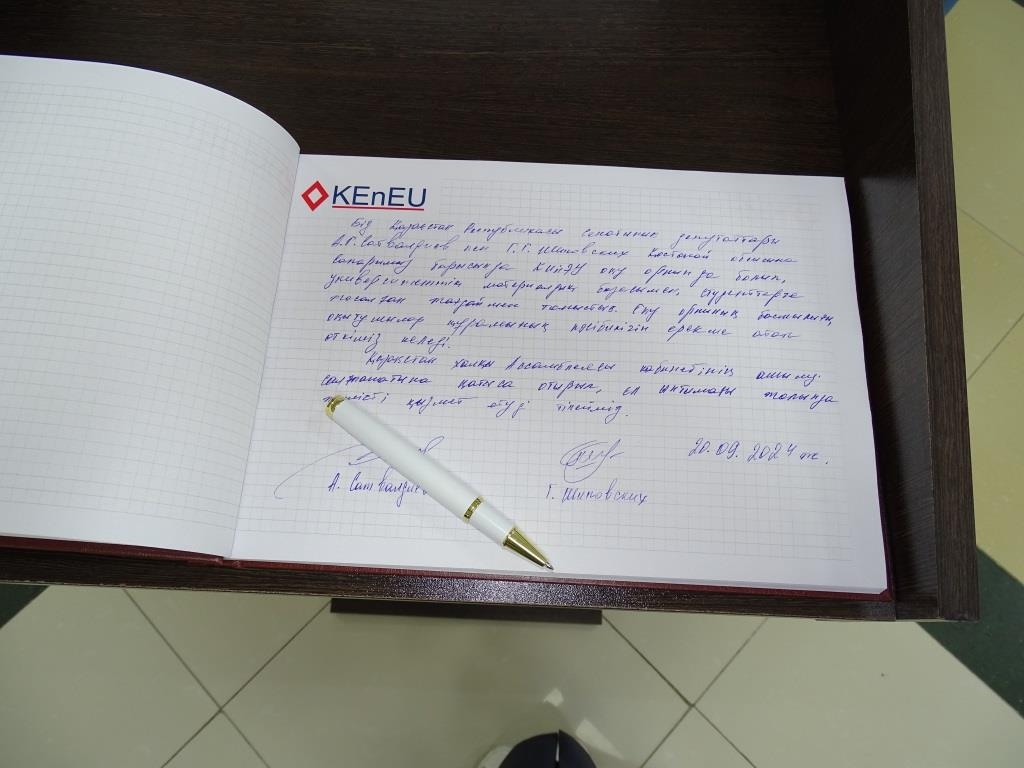 KEnEU
Біз Қазақстан Республикасы Сенатының депутаттары
А.Г. Сатвалдиев пен Г.Г. Шиповских Қостанай облысына
сапарымыз барысында ҚИнЭУ оқу орнында болып,
университеттің материалдық базасымен, студенттерге
жасалған жағдаймен таныстық. Оқу орнының басшылығы,
оқытушылар құрамының кәсібилігін ерекше атап
өткіміз келеді.
Қазақстан халқы Ассамблеясы кабинетінің ашылу
салтанатына қатыса отырып, ел ынтымағы жолында
қызмет етуді тілейміз.
20.09.2024 ж.
А. Сатвалдиев
Г. Шиповских